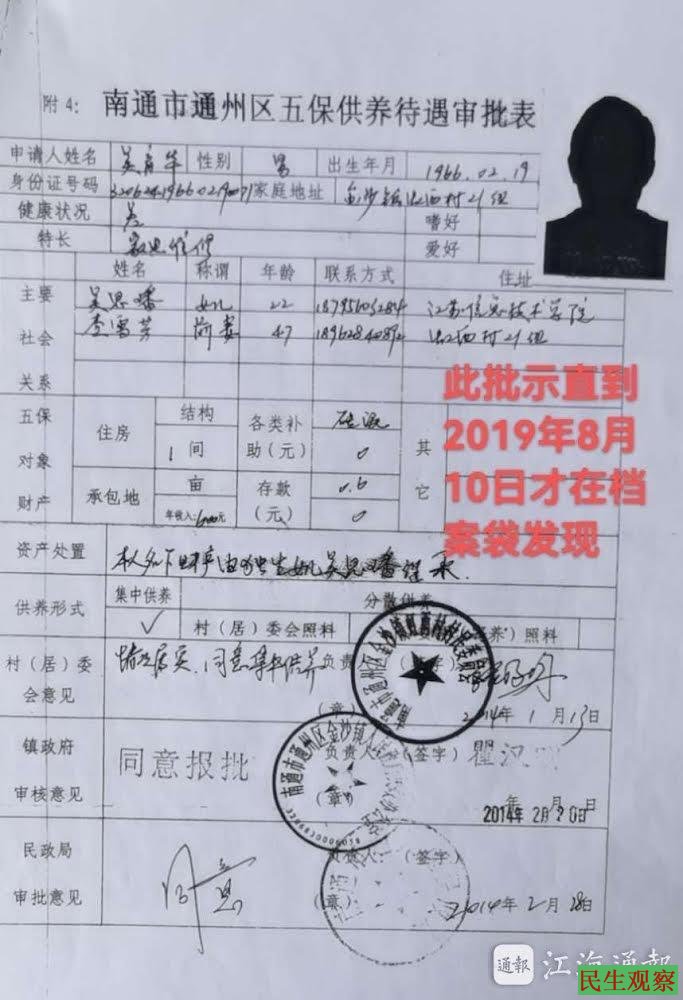 附4：南通市通州区五保供养待遇审批表
申请人姓名 性别 男 出生年月 1966.02.19
身份证号码 家庭地址 21组
健康状况 差 嗜好
特长 家电维修 爱好
姓名 称谓 年龄 联系方式 住址
主要 吴思 女儿 22 江苏信息技术学院
社会 李雪芳 前妻 47 21组
关系
此批示直到
2019年8月
10日才在档
案袋发现
五保 住房 结构 各类补 其
对象 1间 助（元） 0
财产 承包地 亩 存款 0.6 它
年收入： 元 （元） 0
资产处置 本人名下财产由独生女儿吴思 继承
供养形式 集中供养 分散供养
✓ 村（居）委会照料 养）照料
村（居）委 情况属实、同意集中供养 负责人 （签字）
会意见 （章） 2014年1月13日
南通市通州区金沙镇 村村民委员会
镇政府 同意报批 负责人 （签字） 瞿汉
审核意见 （章） 2014年2月20日
南通市通州区金沙镇人
民政局 负责人 （签字）
审批意见 （章） 2014年2月28日
通報 江海通報
民生观察